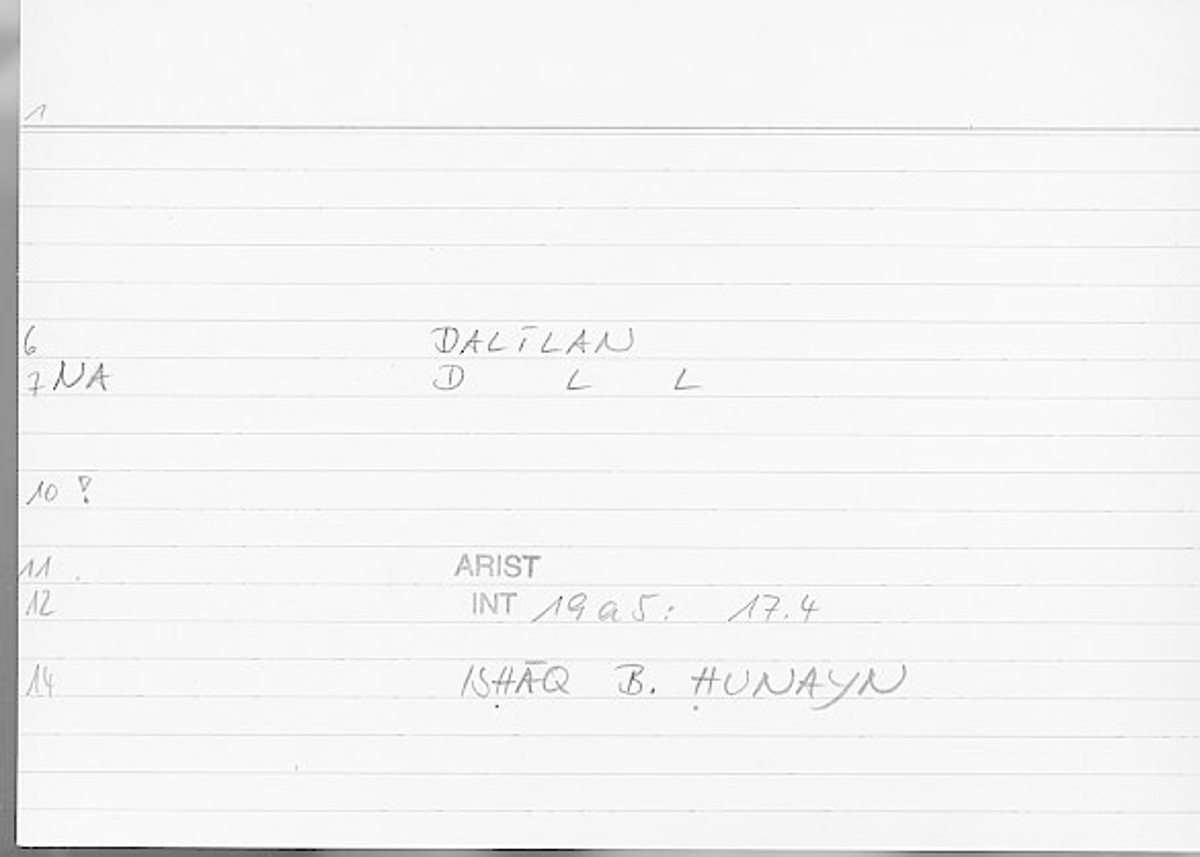 1
6 DALĪLAN
7 NA D L L
10 !
11 . ARIST
12 INT 19a5: 17.4
14 ISḤĀQ B. ḤUNAYN